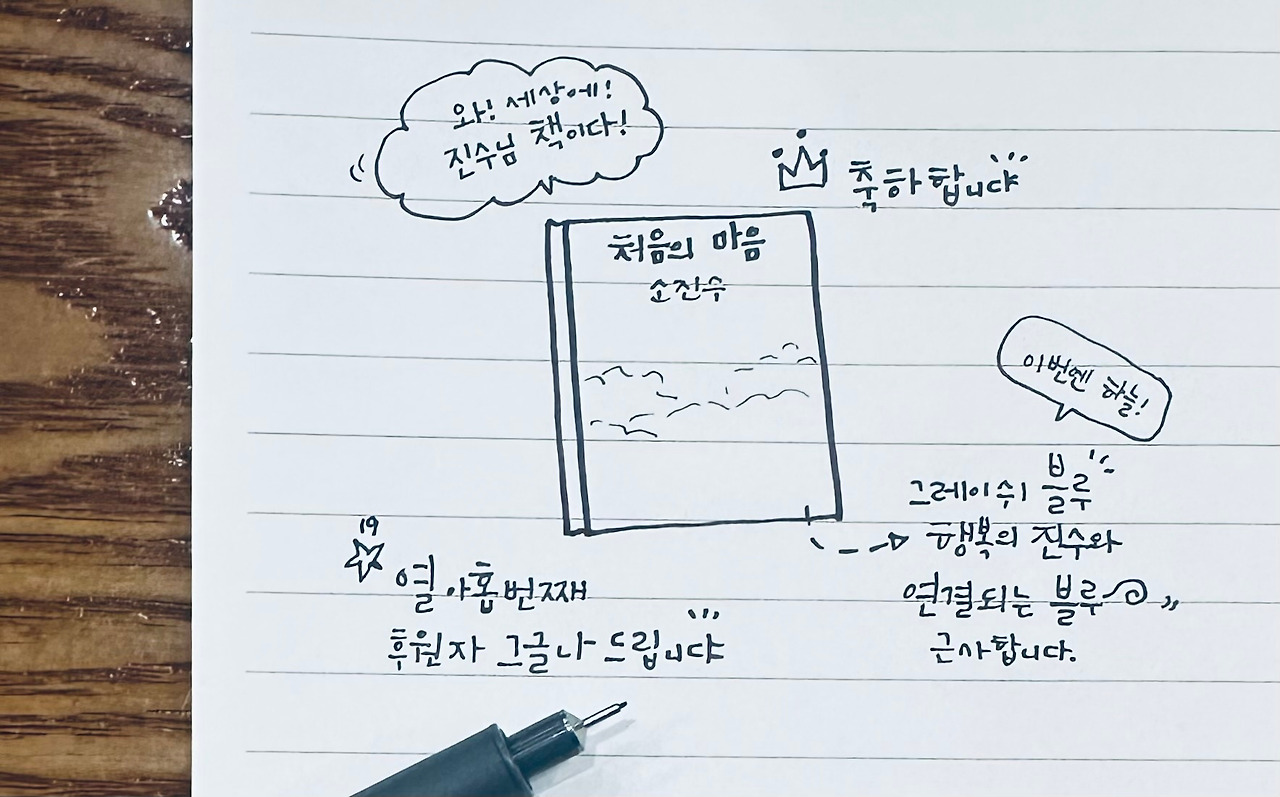 와! 세상에!
진수님 책이다!
축하합니다
처음의 마음
소진수
이번엔 하늘!
그레이쉬 블루
행복의 진수와
연결되는 블루
근사합니다.
19
열아홉번째
후원자 그글나 드립니다